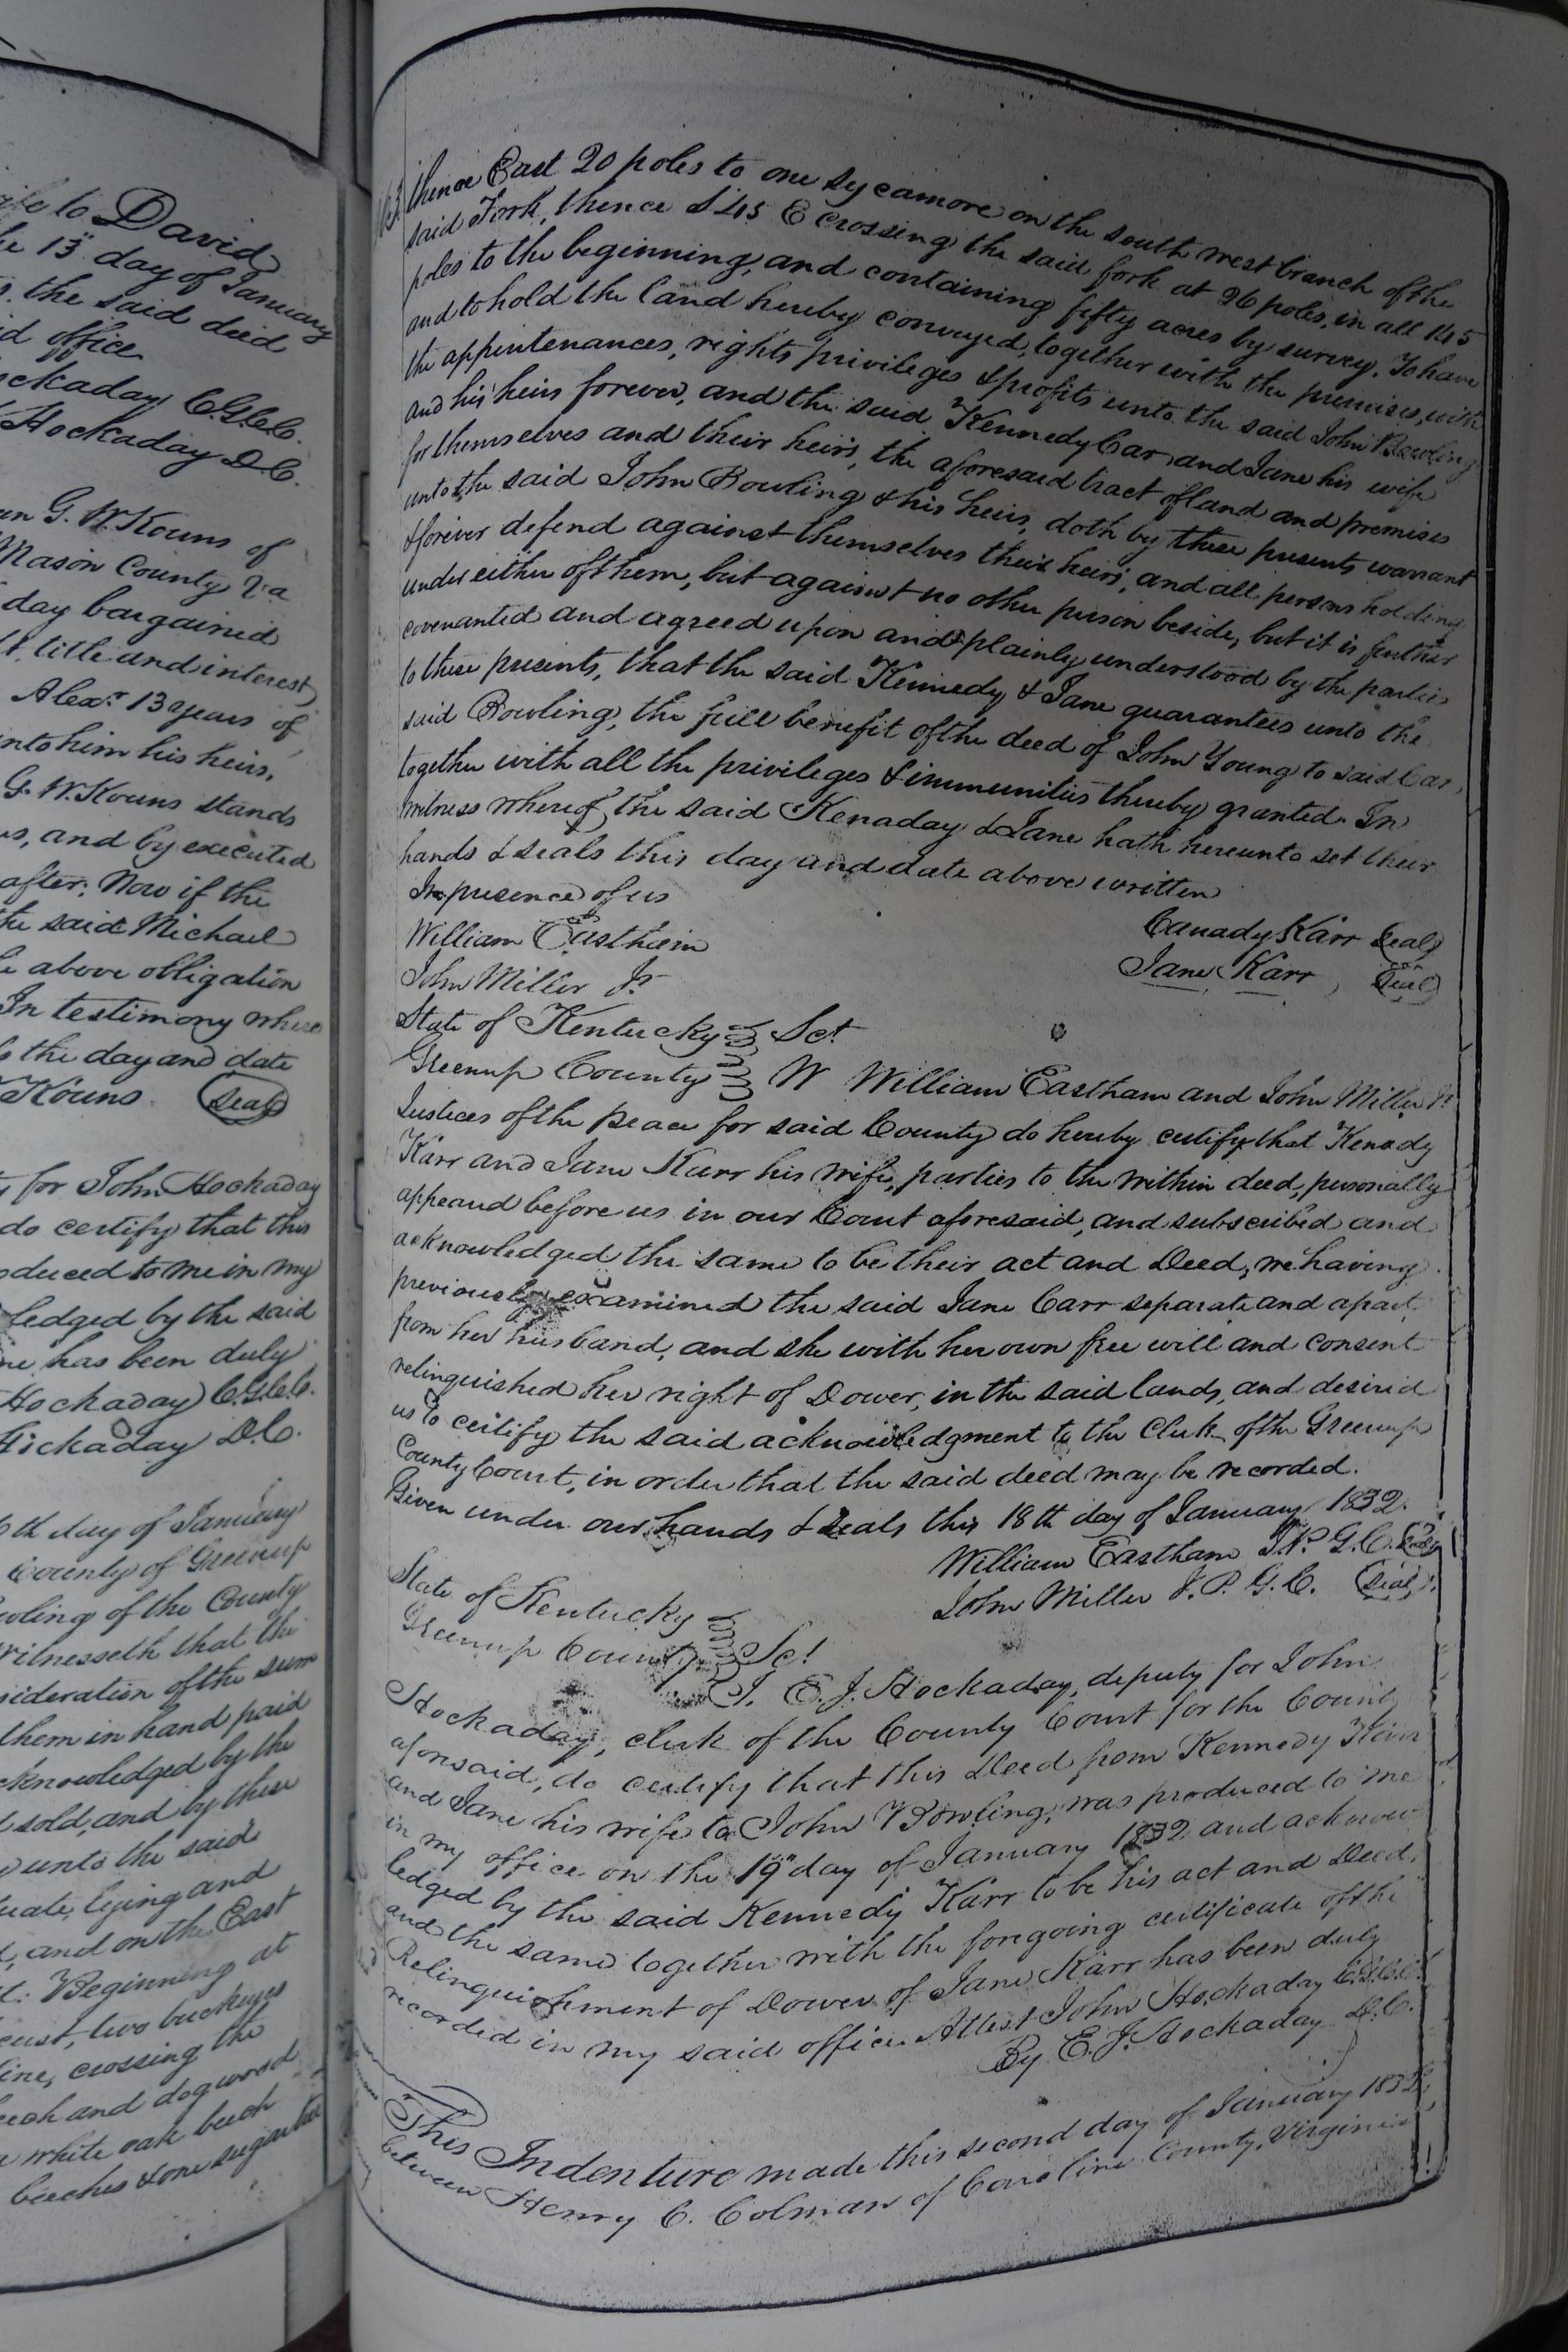 ife to David
he 13" day of January
s. the said deed
id office
ockaday C.G.C.C.
Hockaday D.C.
en G. W. Kouns of
Mason County Va
day bargained
t. title and interest
Alexr. 13 years of
into him his heirs,
G. W. Kouns stands
us, and by executed
after; Now if the
the said Michael
e above obligation
In testimony where
the day and date
Kouns. Seal
for John Hockaday
do certify that this
oduced to me in my
ledged by the said
ne has been duly
Hockaday C.G.C.C.
Hockaday D.C.
th day of January
County of Greenup
wling of the County
witnesseth that the
sideration of the sum
them in hand paid
cknowledged by the
d sold, and by these
unto the said
uate, lying and
, and on the East
t: Beginning at
cust, two buckeyes
line, crossing the
eech and dogwood
a white oak beech
beeches & one sugartree
thence East 20 poles to one sycamore on the south west branch of the
said Fork, thence S 45 E crossing the said fork at 26 poles, in all 145
poles to the beginning, and containing fifty acres by survey. To have
and to hold the land hereby conveyed, together with the premises, with
the appintenances, rights privileges & profits unto the said John Bowling
and his heirs forever, and the said Kennedy Car and Jane his wife
for themselves and their heirs, the aforesaid tract of land and premises
unto the said John Bowling & his heirs, doth by these presents warrant
& forever defend against themselves their heirs, and all persons holding
under either of them, but against no other person beside, but it is further
covenanted and agreed upon and plainly understood by the parties
to these presents, that the said Kennedy & Jane guarantees unto the
said Bowling, the full benefit of the deed of John Young to said Car,
together with all the privileges & immunities thereby granted. In
witness whereof the said Kenaday & Jane hath hereunto set their
hands & seals this day and date above written
In presence of us
William Eastham
John Miller Jr
Canady Karr Seal
Jane Karr Seal
State of Kentucky Sct
Greenup County W William Eastham and John Miller Jr
Justices of the peace for said County do hereby certify that Kenady
Karr and Jane Karr his wife, parties to the within deed, personally
appeared before us in our Court aforesaid, and subscribed and
acknowledged the same to be their act and Deed, we having
previously examined the said Jane Carr separate and apart
from her husband, and she with her own free will and consent
relinquished her right of Dower, in the said lands, and desired
us to certify the said acknowledgment to the Clerk of the Greenup
County Court, in order that the said deed may be recorded.
Given under our hands & seals this 18th day of January 1832.
William Eastham J.P. G.C. Seal
John Miller J.P. G.C. Seal
State of Kentucky
Greenup County Sct
I. E. J. Hockaday, deputy for John
Hockaday, clerk of the County Court for the County
aforesaid, do certify that this Deed from Kennedy Karr
and Jane his wife to John Bowling, was produced to me
in my office on the 19" day of January 1832 and acknow
ledged by the said Kennedy Karr to be his act and Deed,
and the same together with the foregoing certificate of the
Relinquishment of Dower of Jane Karr has been duly
recorded in my said office. Attest John Hockaday C.G.C.C.
By E. J. Hockaday D.C.
This Indenture made this second day of January 1832,
between Henry C. Colman of Caroline County, Virginia